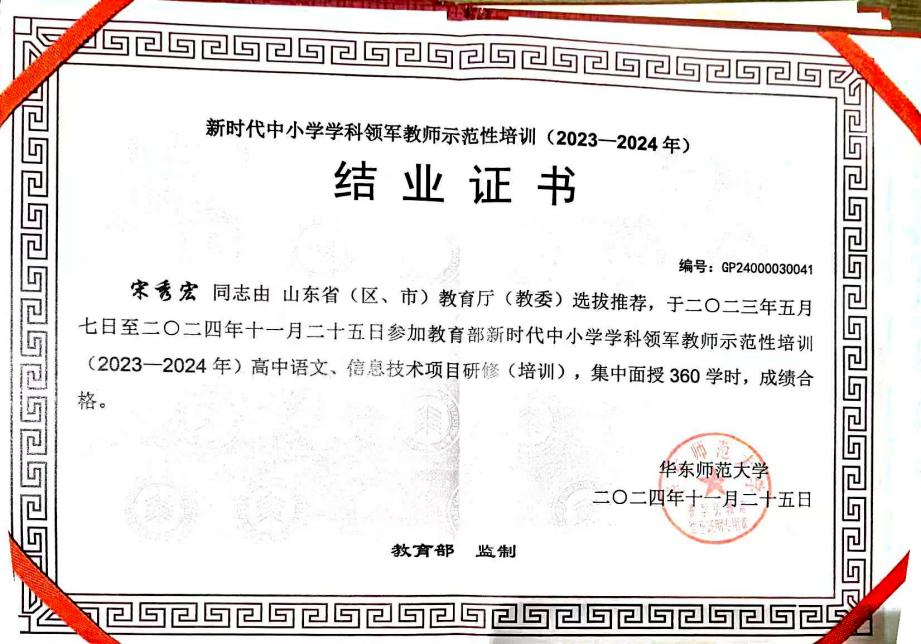 新时代中小学学科领军教师示范性培训（2023—2024年）
结业证书
编号：GP24000030041
宋秀宏 同志由 山东省（区、市）教育厅（教委）选拔推荐，于二〇二三年五月
七日至二〇二四年十一月二十五日参加教育部新时代中小学学科领军教师示范性培训
（2023—2024年）高中语文、信息技术项目研修（培训），集中面授360学时，成绩合
格。
华东师范大学
二〇二四年十一月二十五日
教育部 监制